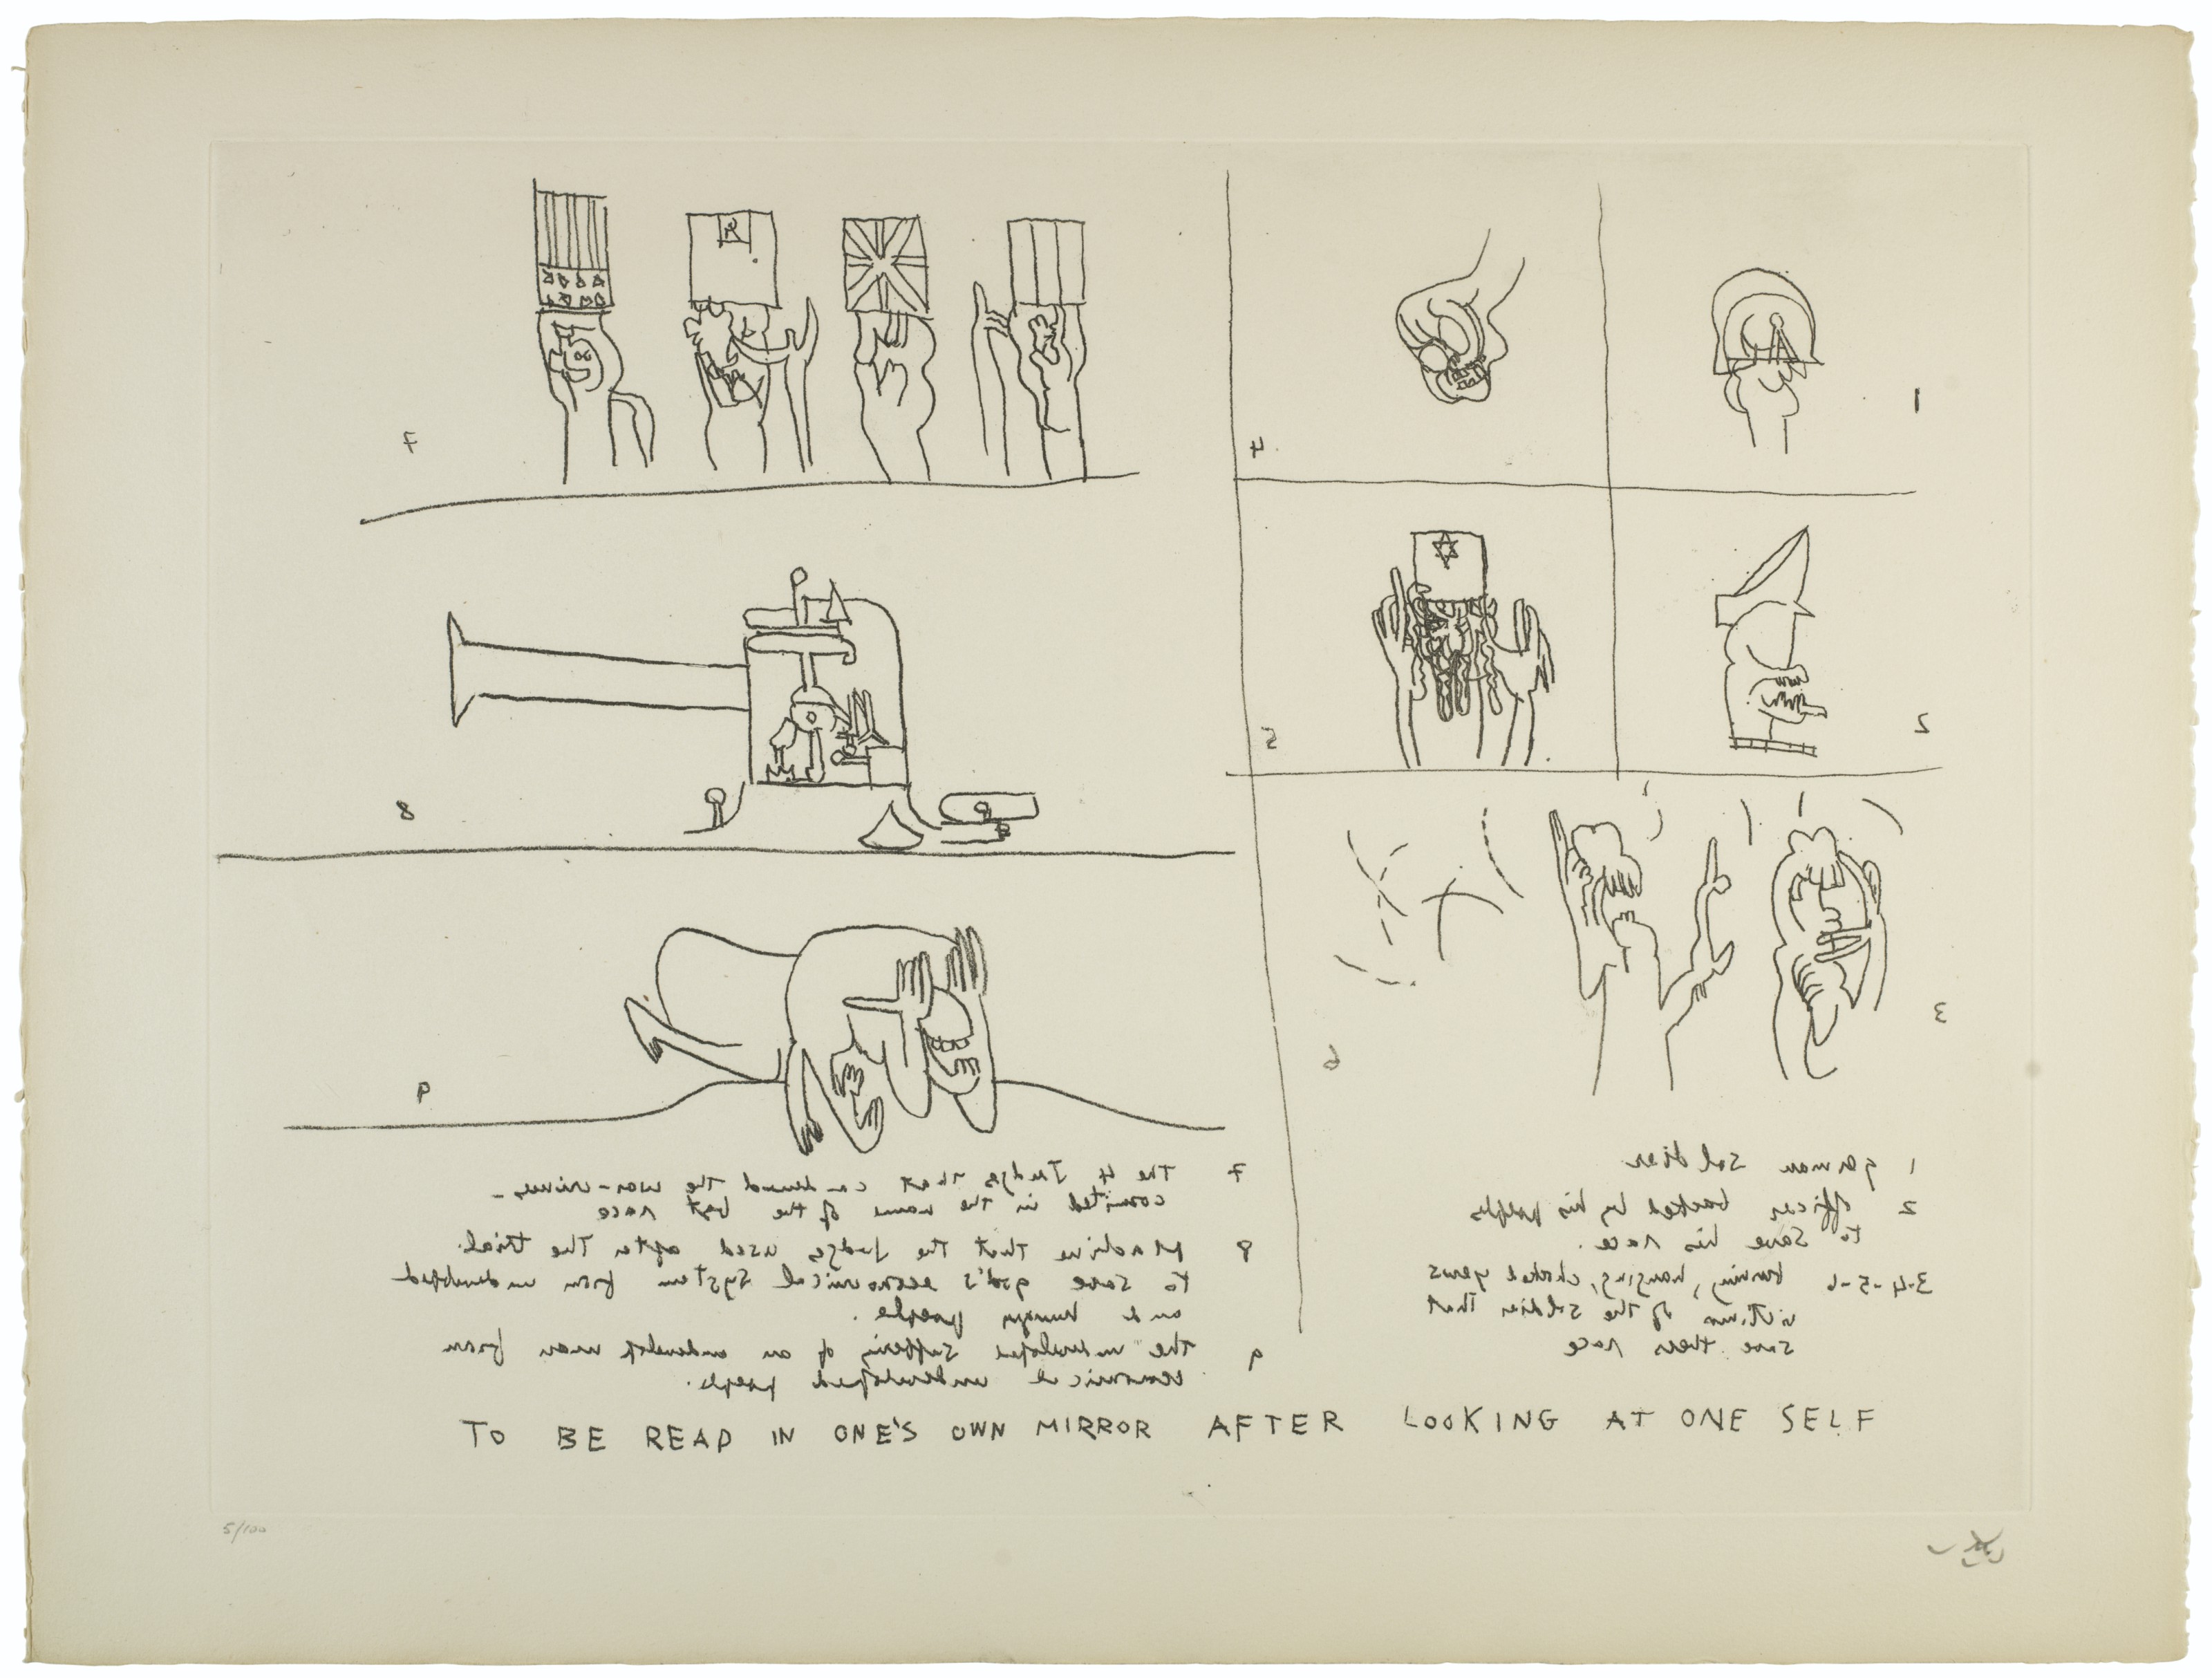 1
4
7
2
5
8
3
6
9
1 german soldier
2 officer backed by his people
to save his race.
3-4-5-6 burning, hanging, choked yews
victims of the soldier that
save race
7 The 4 Judges that the war-crimes -
comited in the name of the best race
8 Machine that the judges used after the trial.
to save god's economical system from
and hungry people.
9 the suffering of an undevelop man from
economical undeveloped people.
TO BE READ IN ONE'S OWN MIRROR AFTER LOOKING AT ONE SELF
5/100